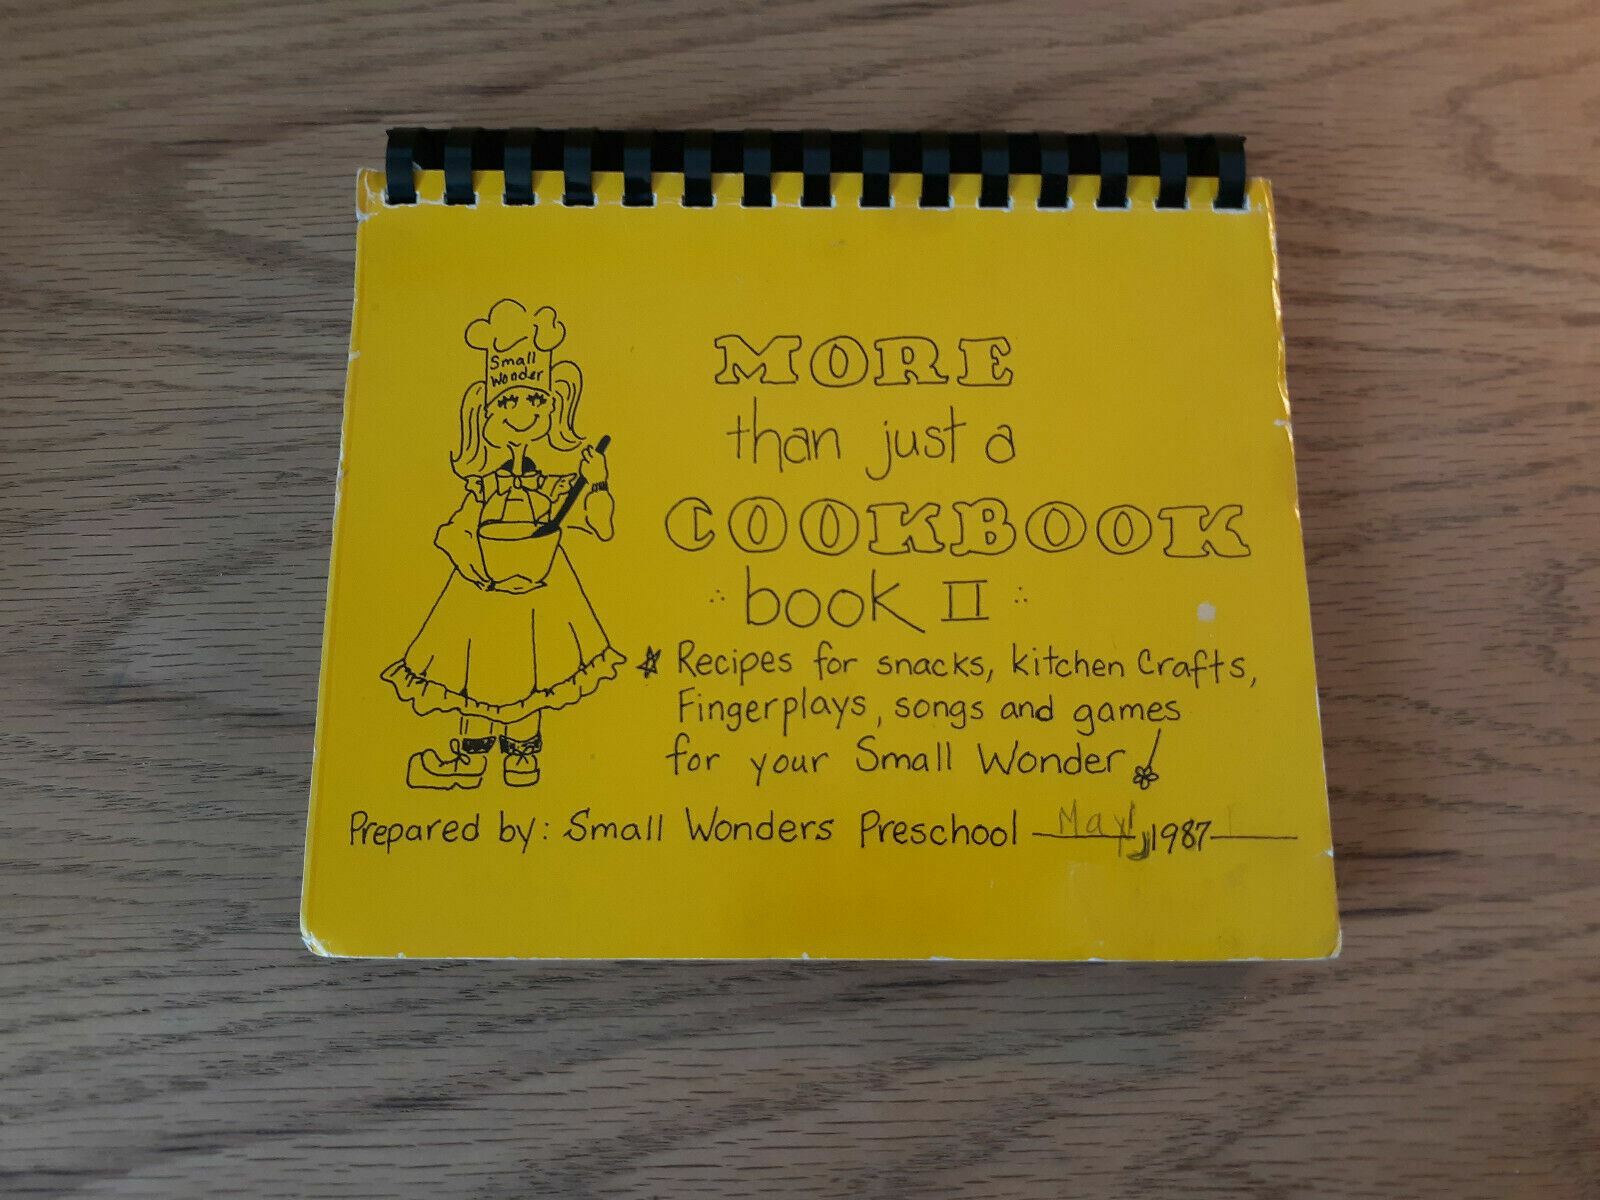 Small
Wonder
MORE
than just a
COOKBOOK
book II
Recipes for snacks, kitchen Crafts,
Fingerplays, songs and games
for your Small Wonder!
Prepared by: Small Wonders Preschool May, 1987